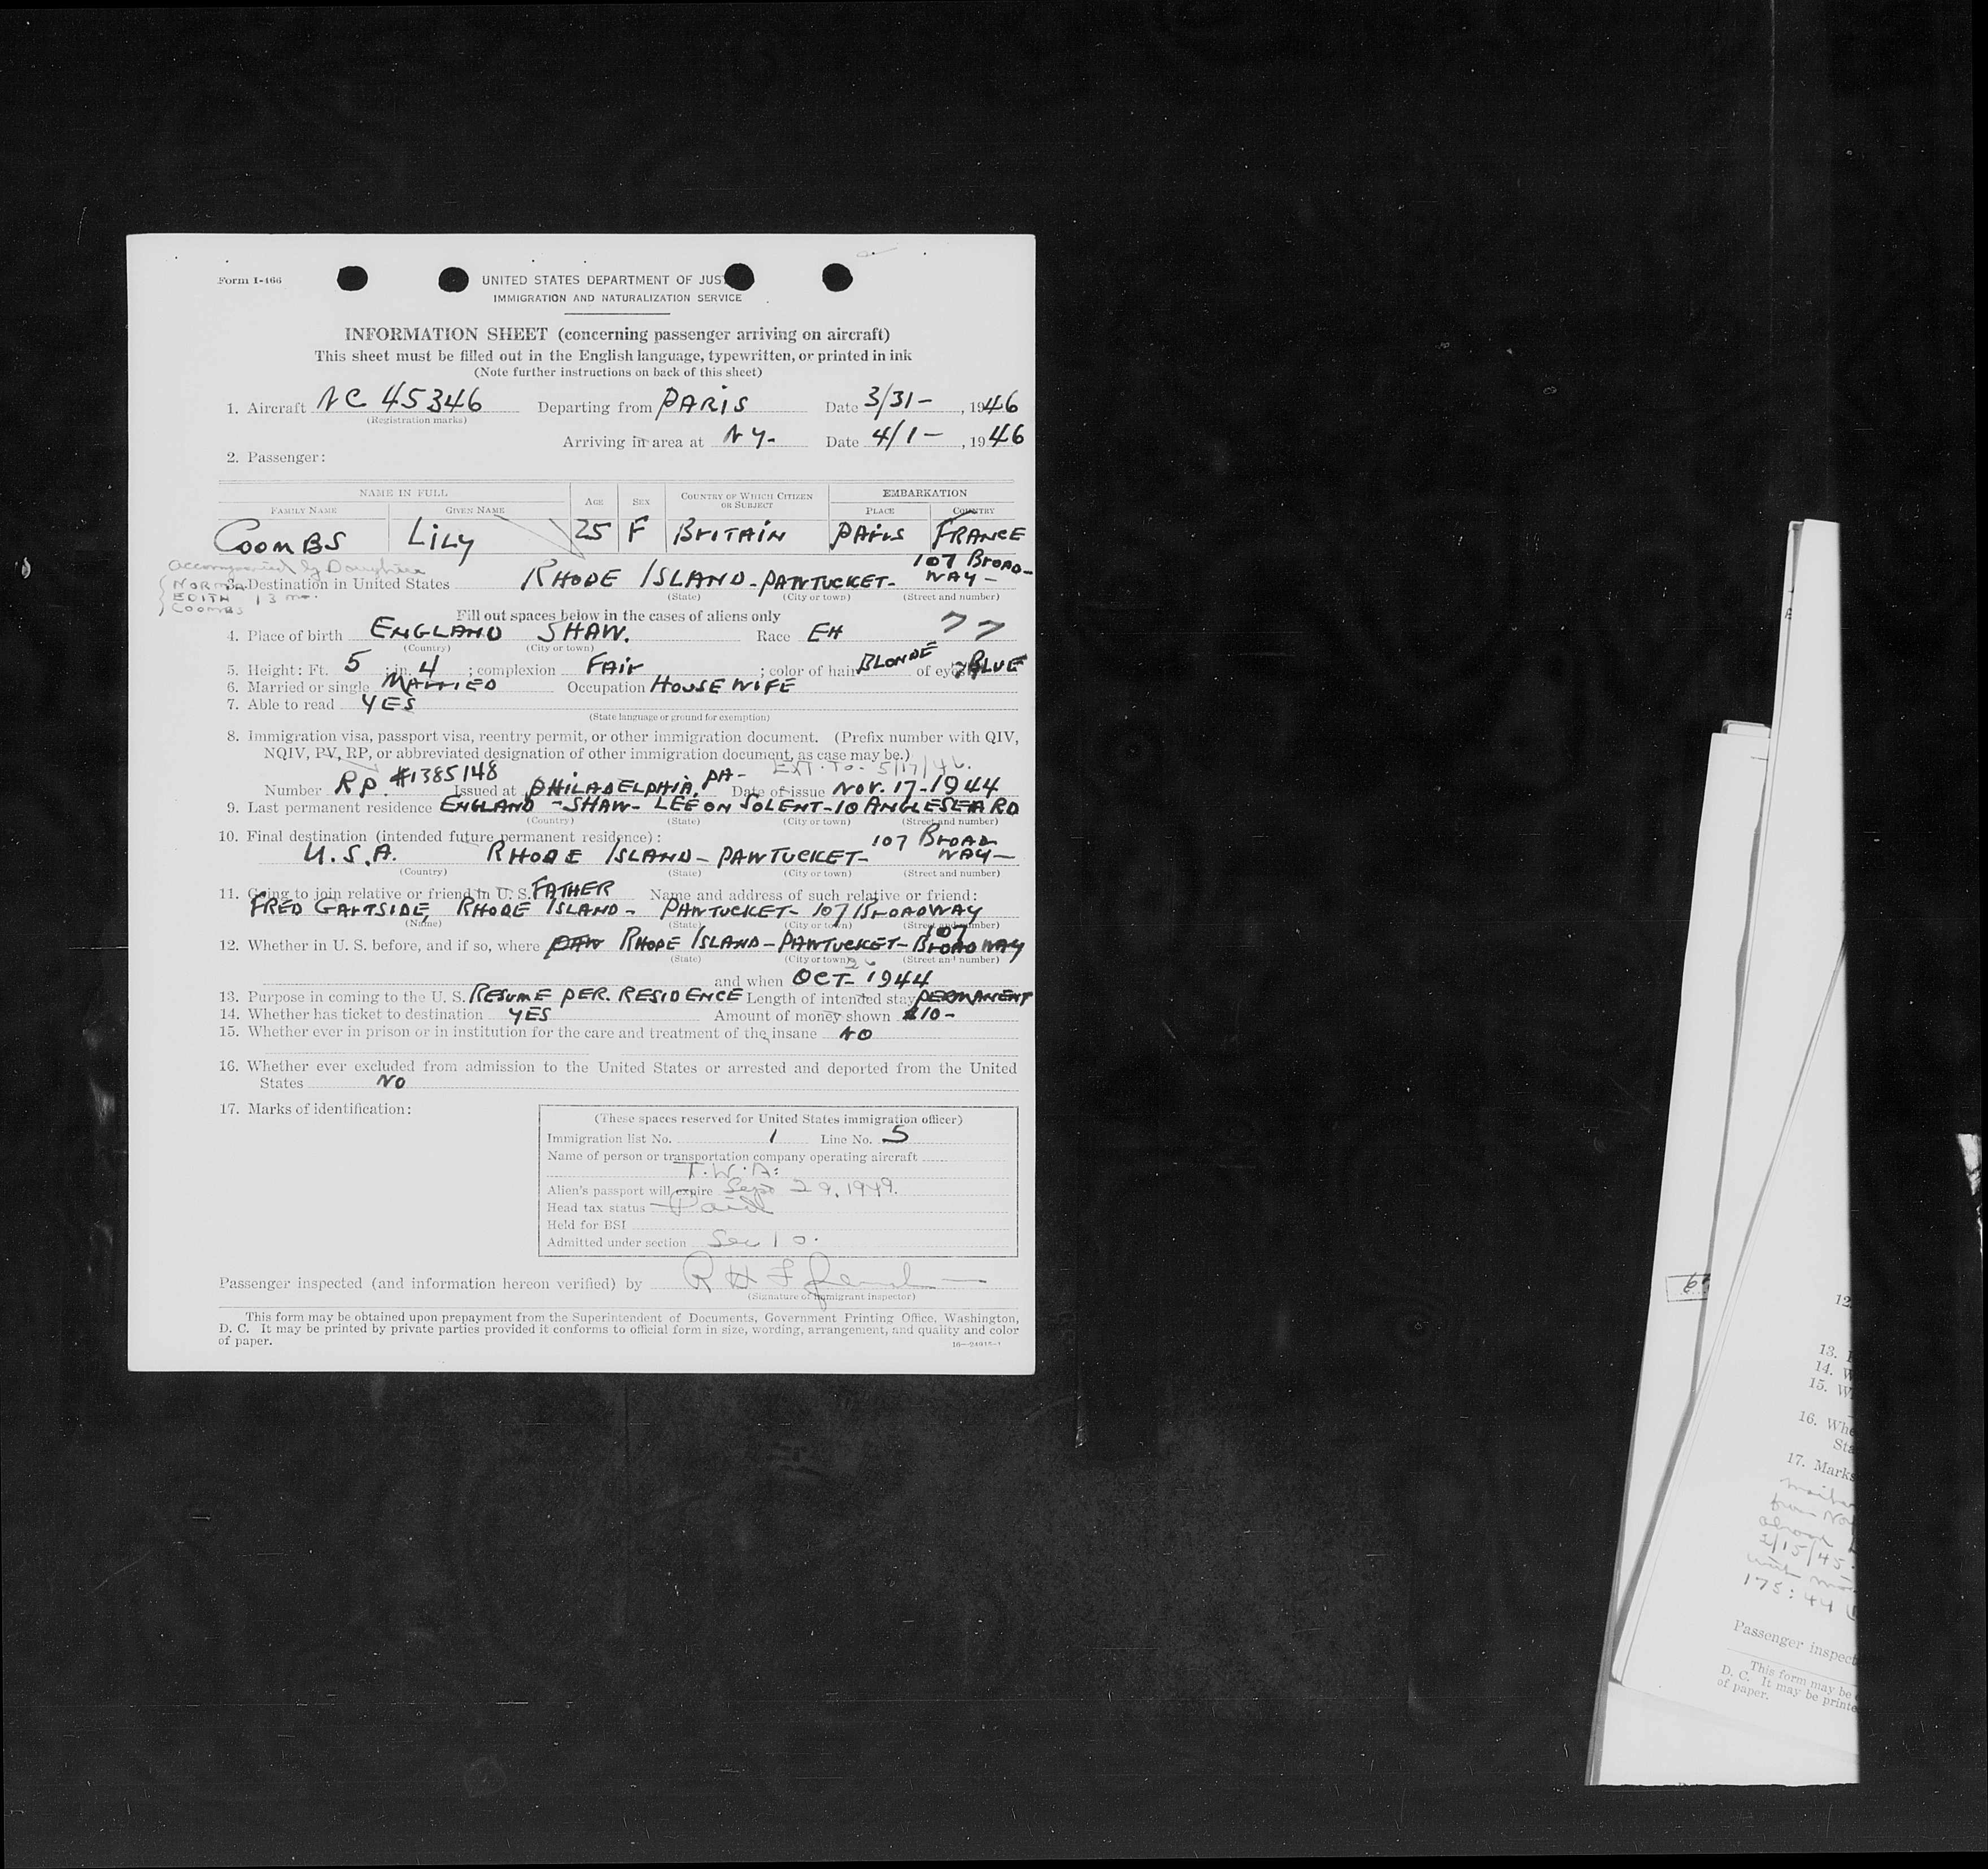 Form I-466
UNITED STATES DEPARTMENT OF JUS
IMMIGRATION AND NATURALIZATION SERVICE
INFORMATION SHEET (concerning passenger arriving on aircraft)
This sheet must be filled out in the English language, typewritten, or printed in ink
(Note further instructions on back of this sheet)
1. Aircraft NC 45346 Departing from PARIS Date 3/31- , 1946
(Registration marks)
Arriving in area at NY- Date 4/1- , 1946
2. Passenger:
NAME IN FULL AGE SEX COUNTRY OF WHICH CITIZEN OR SUBJECT EMBARKATION
FAMILY NAME GIVEN NAME PLACE COUNTRY
COOMBS LILY 25 F BRITAIN PARIS FRANCE
accompanied by Daughter
NORMA EDITH COOMBS 13 mo.
3. Destination in United States RHODE ISLAND - PAWTUCKET - 107 BROADWAY -
(State) (City or town) (Street and number)
Fill out spaces below in the cases of aliens only
4. Place of birth ENGLAND SHAW. Race EH
(Country) (City or town)
5. Height: Ft. 5 ; in. 4 ; complexion FAIR ; color of hair BLONDE of eyes BLUE
6. Married or single MARRIED Occupation HOUSEWIFE
7. Able to read YES
(State language or ground for exemption)
8. Immigration visa, passport visa, reentry permit, or other immigration document. (Prefix number with QIV,
NQIV, PV, RP, or abbreviated designation of other immigration document, as case may be.)
EXT. TO - 5/17/46.
Number RP. #1385148 Issued at PHILADELPHIA, PA- Date of issue NOV. 17-1944
9. Last permanent residence ENGLAND - SHAW - LEE ON SOLENT - 10 ANGLESEA RD
(Country) (State) (City or town) (Street and number)
10. Final destination (intended future permanent residence):
U.S.A. RHODE ISLAND - PAWTUCKET - 107 BROADWAY -
(Country) (State) (City or town) (Street and number)
11. Going to join relative or friend in U. S. FATHER Name and address of such relative or friend:
FRED GARTSIDE, RHODE ISLAND - PAWTUCKET - 107 BROADWAY
(Name) (State) (City or town) (Street and number)
12. Whether in U. S. before, and if so, where RHODE ISLAND - PAWTUCKET - 107 BROADWAY
(State) (City or town) (Street and number)
and when OCT- 1944
13. Purpose in coming to the U. S. RESUME PER. RESIDENCE Length of intended stay PERMANENT
14. Whether has ticket to destination YES Amount of money shown $10-
15. Whether ever in prison or in institution for the care and treatment of the insane NO
16. Whether ever excluded from admission to the United States or arrested and deported from the United
States NO
17. Marks of identification:
(These spaces reserved for United States immigration officer)
Immigration list No. 1 Line No. 5
Name of person or transportation company operating aircraft
T.W.A.
Alien's passport will expire Sept 29, 1949.
Head tax status Paid
Held for BSI
Admitted under section Sec 10.
Passenger inspected (and information hereon verified) by
(Signature of immigrant inspector)
This form may be obtained upon prepayment from the Superintendent of Documents, Government Printing Office, Washington,
D. C. It may be printed by private parties provided it conforms to official form in size, wording, arrangement, and quality and color
of paper.
12.
13.
14. W
15. W
16. Whe
Sta
17. Marks
2/15/45
175:44
Passenger inspect
This form may be
D. C. It may be printe
of paper.